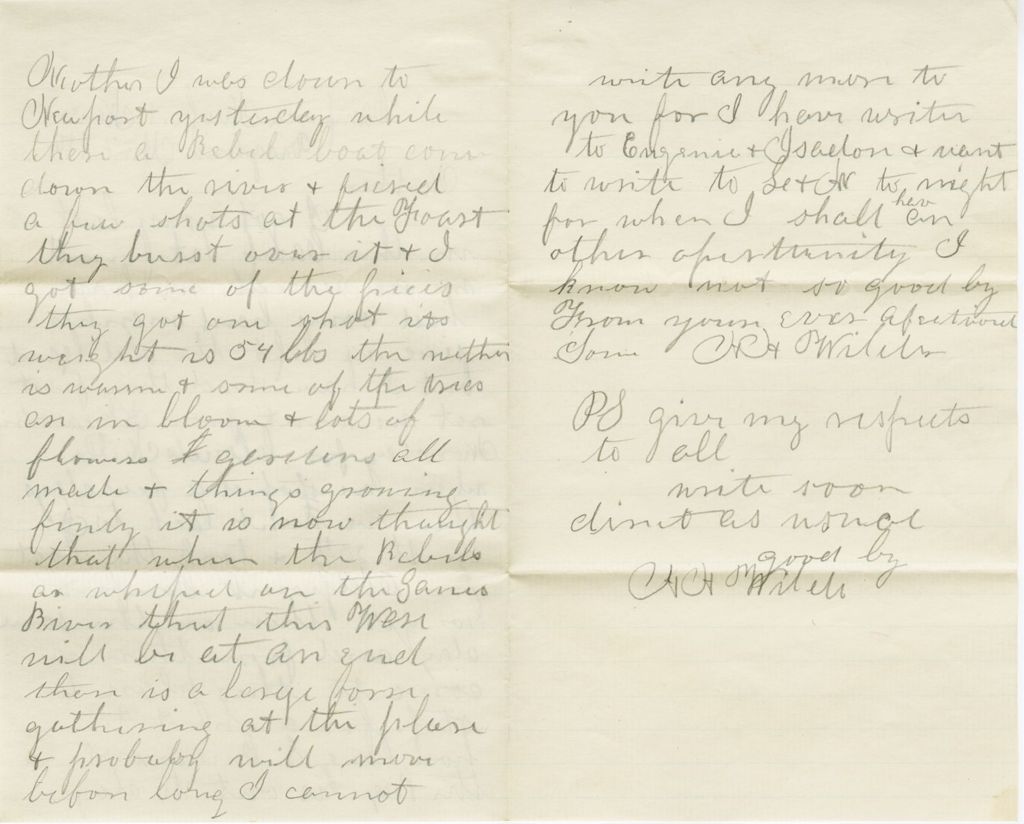 Mother I was down to
Newport yesterday while
there a Rebel boat come
down the river & fiered
a few shots at the Foart
they burst over it & I
got some of the pieces
they got one shot its
weight is 54 lbs the wether
is warme & some of the trees
are in bloom & lots of
flowers & gardens all
made & things growing
finly it is now thought
that when the Rebels
are whiped on the James
River that this Ware
will be at an end
there is a large forse
gathering at the plase
& probably will move
before long I cannot
write any more to
you for I have writen
to Eugenie & Isadore & want
to write to to night
for when I shall hav an
other opertunity I
know not so good by
From youre ever afectionet
Sone Wilder
PS give my respects
to all
write soon
direct as usual
good by
Wilder